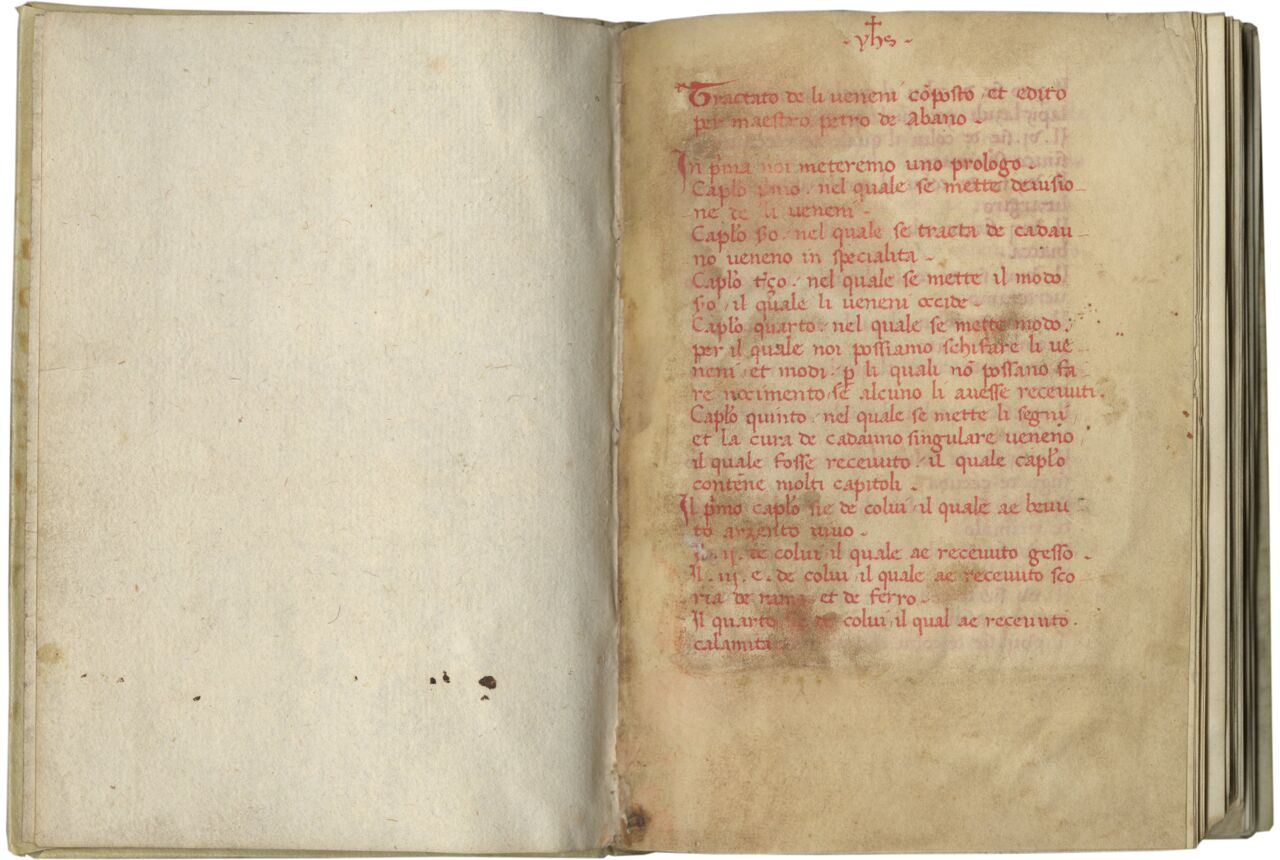 - yhs -
Tractato de li veneni cõposto et edito
per maestro petro de Abano -
In p̃ma noi meteremo uno prologo -
Caplo p̃mo . nel quale se mette deuisio
ne de li veneni -
Caplo . nel quale se tracta de cadau
no veneno in specialita -
Caplo . nel quale se mette il modo
il quale li veneni occide -
Caplo quarto . nel quale se mette modo .
per il quale noi possiamo schifare li ve
neni et modi . ꝑ li quali nõ possano fa
re nocimento se alcuno li auesse receuuti .
Caplo quinto . nel quale se mette li segni
et la cura de cadauno singulare veneno
il quale fosse receuuto . il quale caplo
contẽne molti capitoli -
Il p̃mo caplo sie de colui il quale ae beuu
to argento uiuo -
Il . ij . de colui il quale ae receuuto gesso -
Il . iij . e . de colui il quale ae receuuto sco
ria de rame et de ferro -
Il quarto sie de colui il qual ae receuuto .
calamita -